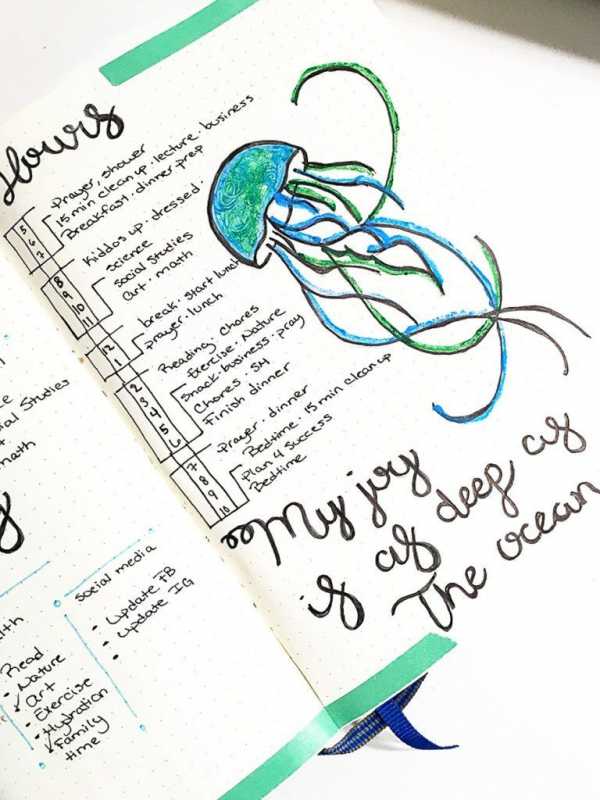 Hours
5
6
7
Prayer, shower
15 min clean up · lecture · business
Breakfast · dinner prep
8
9
10
11
Kiddos up · dressed
Science
Social Studies
art · math
12
1
break · start lunch
prayer · lunch
2
3
4
5
6
Reading chores
Exercise · Nature
Snack · business · pray
Chores · SM
Finish dinner
7
8
9
10
Prayer · dinner
Bedtime · 15 min clean up
Plan 4 Success
Bedtime
My joy
is as deep as
The ocean
Studies
math
Read
Nature
art
Exercise
Hydration
Family
time
Social media
update FB
update IG